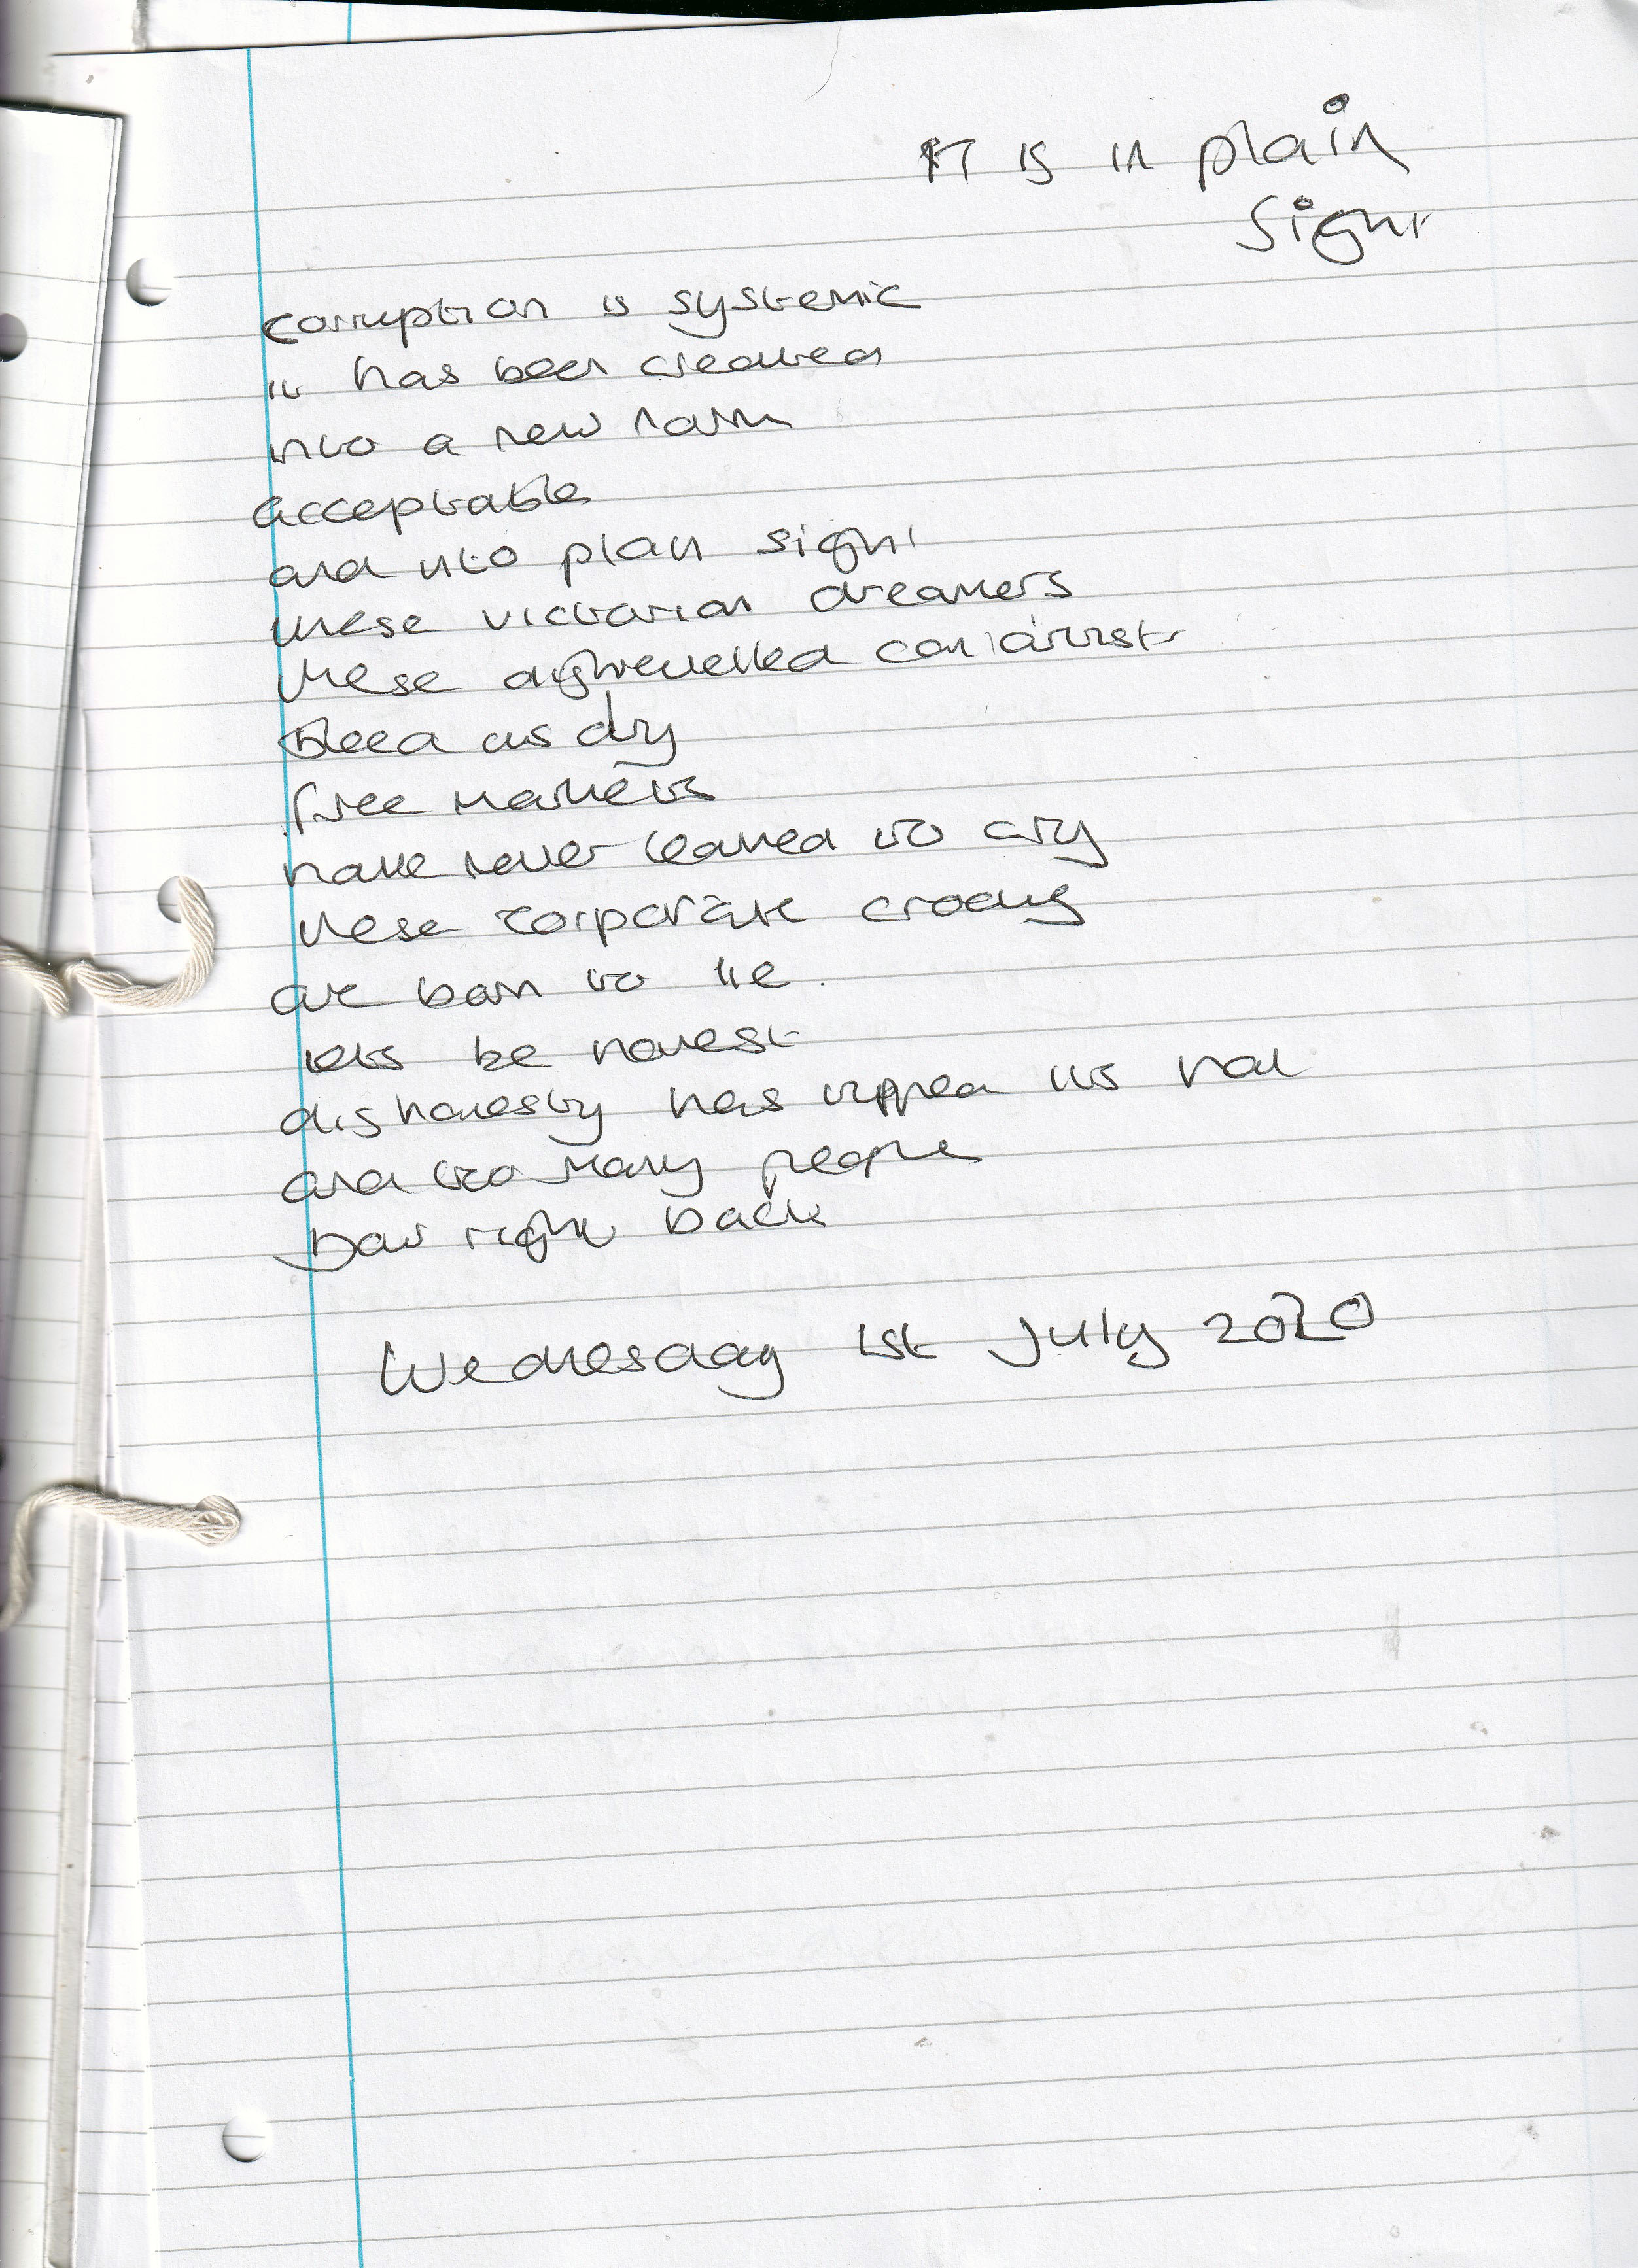 IT IS in plain
sight
corruption is systemic
it has been created
into a new norm
acceptable
and into plan sight
these victorian dreamers
these con artists
bleed us dry
free markets
have never learned to cry
these corporate
are born to lie
lets be honest
dishonesty has tipped its hat
and too many people
bow right back
Wednesday 1st July 2020